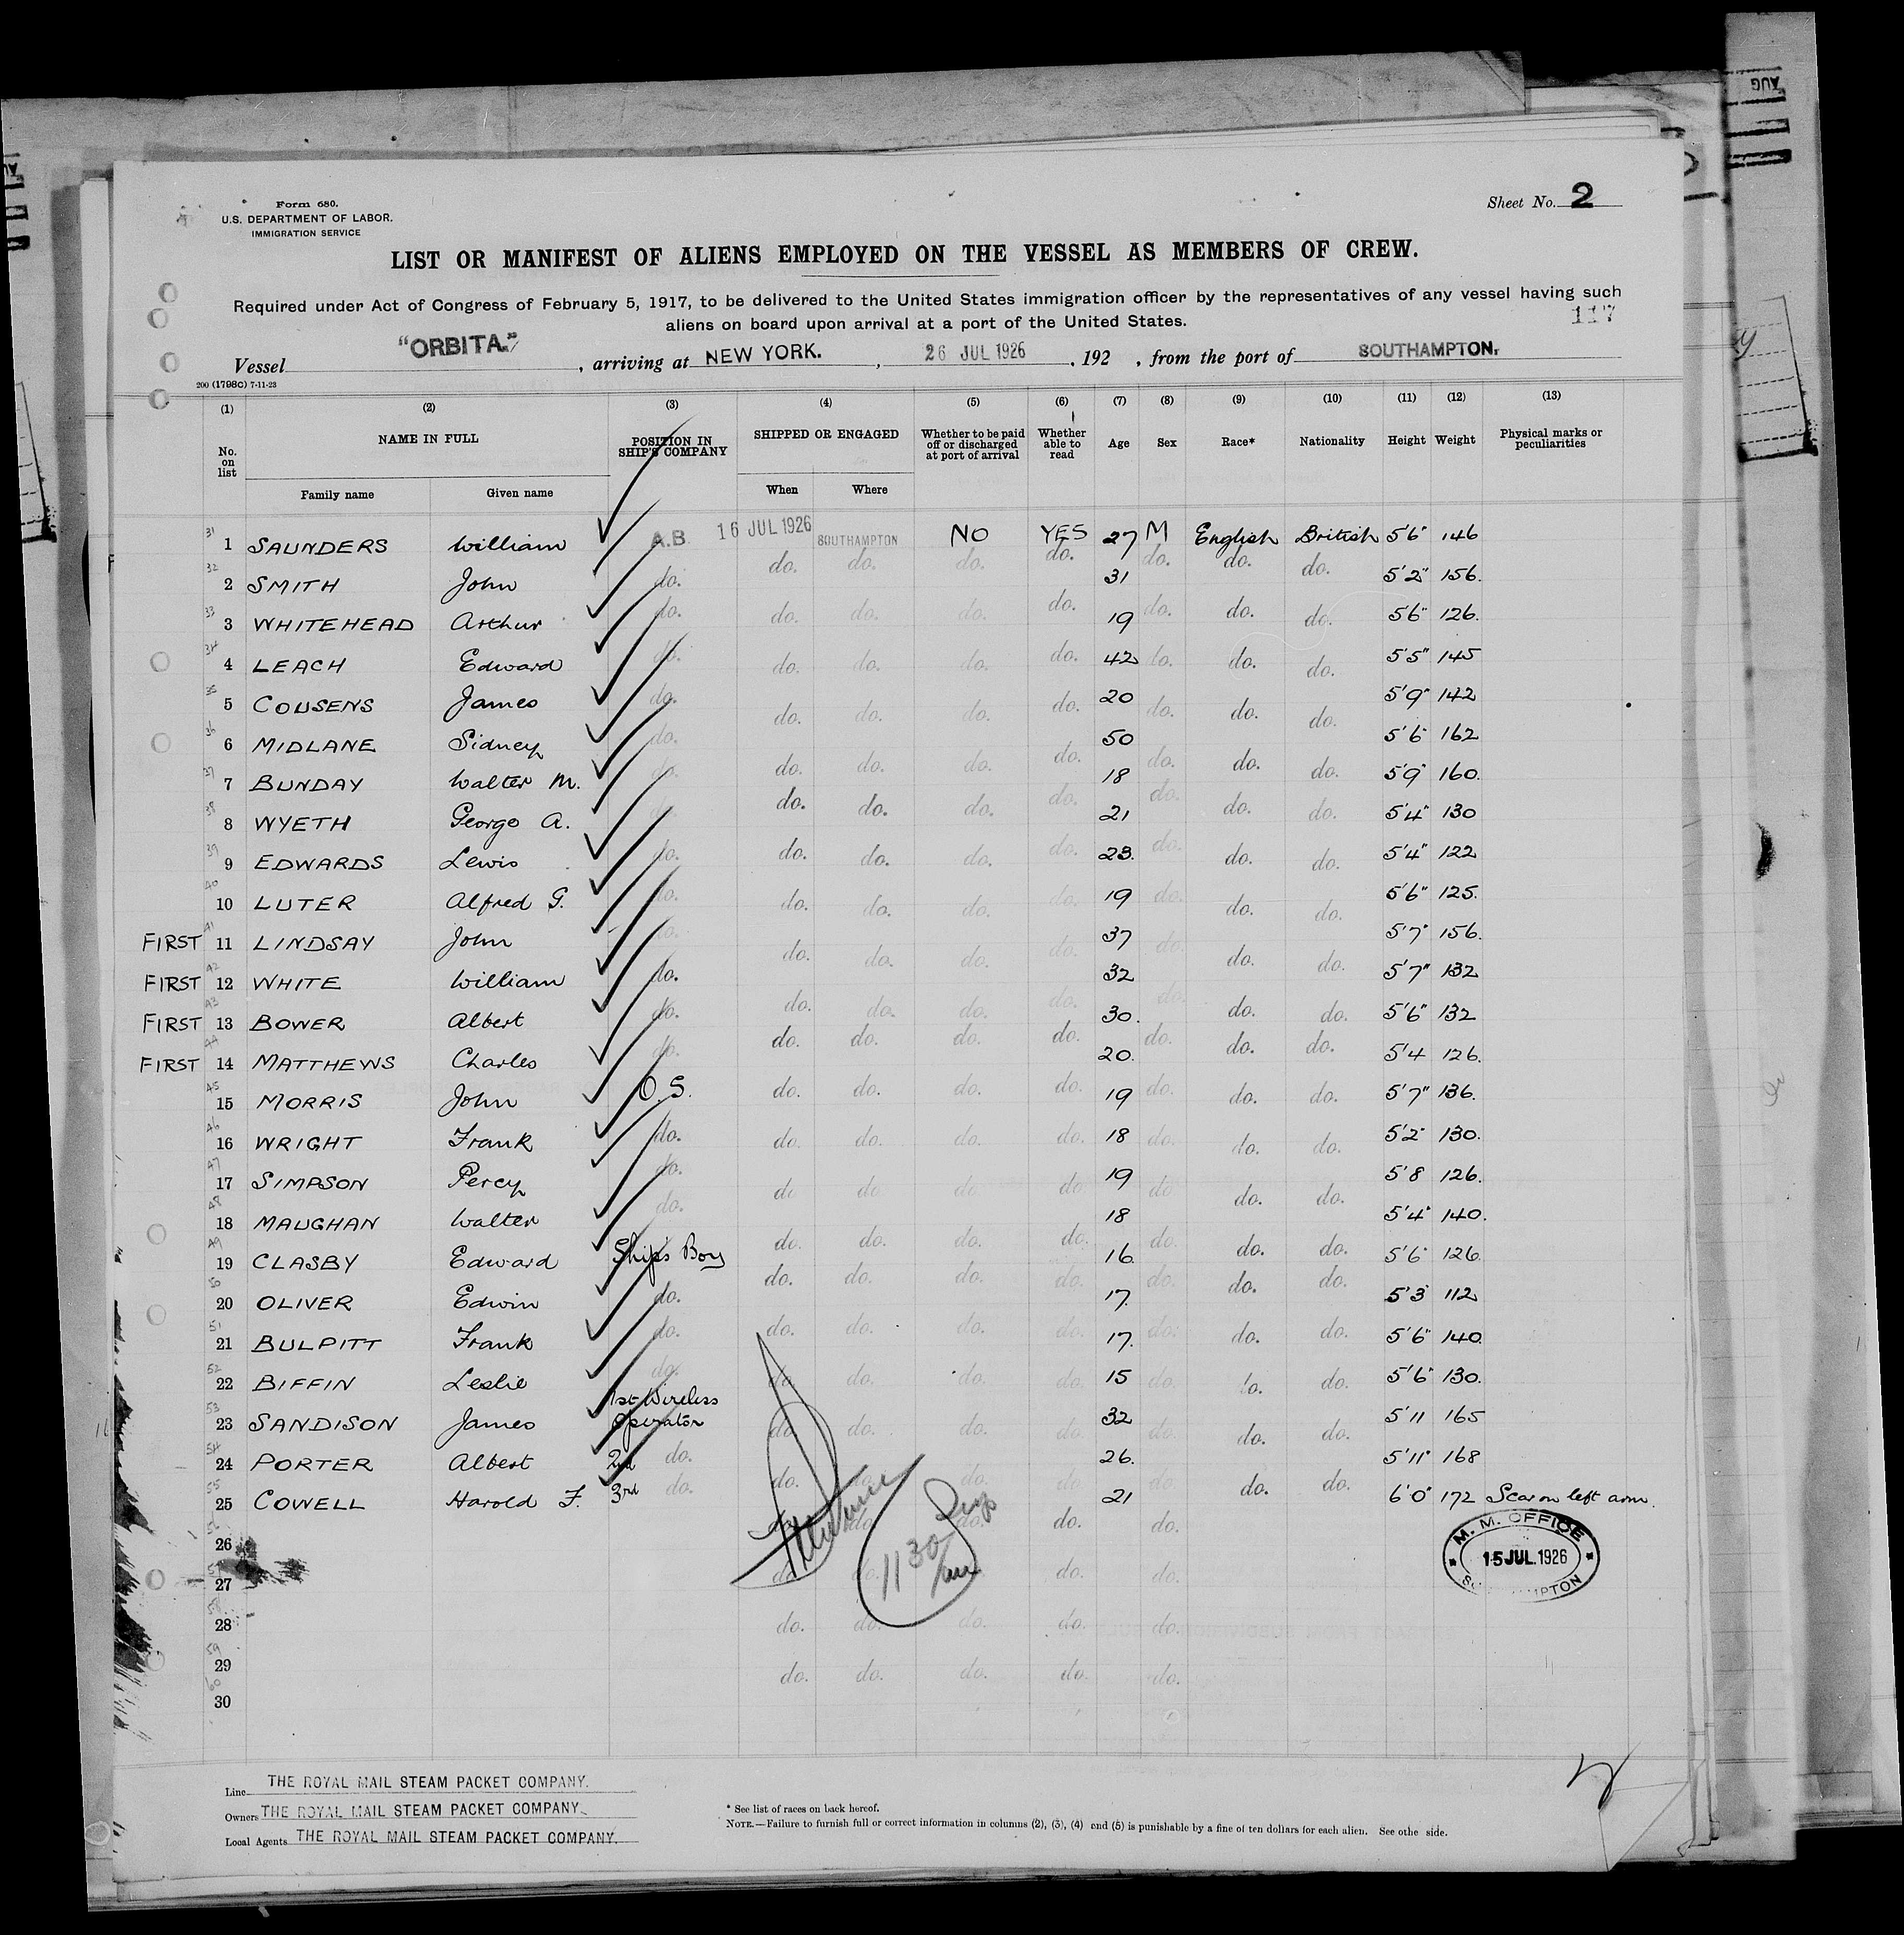 Form 680.
U.S. DEPARTMENT OF LABOR.
IMMIGRATION SERVICE
Sheet No. 2
LIST OR MANIFEST OF ALIENS EMPLOYED ON THE VESSEL AS MEMBERS OF CREW.
Required under Act of Congress of February 5, 1917, to be delivered to the United States immigration officer by the representatives of any vessel having such
aliens on board upon arrival at a port of the United States.
117
Vessel "ORBITA." , arriving at NEW YORK. , 26 JUL 1926 , 192 , from the port of SOUTHAMPTON.
200 (1798C) 7-11-23
(1) (2) (3) (4) (5) (6) (7) (8) (9) (10) (11) (12) (13)
No. on list NAME IN FULL POSITION IN SHIP'S COMPANY SHIPPED OR ENGAGED Whether to be paid off or discharged at port of arrival Whether able to read Age Sex Race* Nationality Height Weight Physical marks or peculiarities
Family name Given name When Where
31 1 SAUNDERS William A.B. 16 JUL 1926 SOUTHAMPTON NO YES 27 M English British 5'6" 146
32 2 SMITH John do. do. do. do. do. 31 do. do. do. 5'2" 156.
33 3 WHITEHEAD Arthur do. do. do. do. do. 19 do. do. do. 5'6" 126.
34 4 LEACH Edward do. do. do. do. do. 42 do. do. do. 5'5" 145
35 5 COUSENS James do. do. do. do. do. 20 do. do. do. 5'9" 142
36 6 MIDLANE Sidney do. do. do. do. do. 50 do. do. do. 5'6" 162
37 7 BUNDAY Walter M. do. do. do. do. do. 18 do. do. do. 5'9" 160.
38 8 WYETH George A. do. do. do. do. 21 do. do. do. 5'4" 130
39 9 EDWARDS Lewis do. do. do. do. do. 23. do. do. do. 5'4" 122
40 10 LUTER Alfred G. do. do. do. do. do. 19 do. do. do. 5'6" 125.
FIRST 41 11 LINDSAY John do. do. do. do. do. 37 do. do. do. 5'7" 156.
FIRST 42 12 WHITE William do. do. do. do. do. 32 do. do. do. 5'7" 132
FIRST 43 13 BOWER Albert do. do. do. do. do. 30. do. do. do. 5'6" 132
FIRST 44 14 MATTHEWS Charles do. do. do. do. do. 20. do. do. do. 5'4 126.
45 15 MORRIS John O.S. do. do. do. do. 19 do. do. do. 5'7" 136.
46 16 WRIGHT Frank do. do. do. do. do. 18 do. do. do. 5'2" 130.
47 17 SIMPSON Percy do. do. do. do. do. 19 do. do. do. 5'8 126.
48 18 MAUGHAN Walter do. do. do. do. do. 18 do. do. do. 5'4" 140.
49 19 CLASBY Edward Ship's Boy do. do. do. do. 16. do. do. do. 5'6" 126.
50 20 OLIVER Edwin do. do. do. do. do. 17. do. do. do. 5'3 112
51 21 BULPITT Frank do. do. do. do. do. 17. do. do. do. 5'6" 140.
52 22 BIFFIN Leslie do. do. do. do. do. 15 do. do. do. 5'6" 130.
53 23 SANDISON James 1st Wireless Operator do. do. do. do. 32 do. do. do. 5'11 165
54 24 PORTER Albert 2nd do. do. do. do. do. 26. 5'11" 168
55 25 COWELL Harold F. 3rd do. do. do. do. do. 21 do. do. do. 6'0" 172 Scar on left arm.
26 do. do. do. do. do.
27 do. do. do. do.
28 do. do. do. do. do.
59 29 do. do. do. do. do.
60 30
11 30 am
M. M. OFFICE
15 JUL. 1926
SOUTHAMPTON
Line THE ROYAL MAIL STEAM PACKET COMPANY.
Owners THE ROYAL MAIL STEAM PACKET COMPANY.
Local Agents THE ROYAL MAIL STEAM PACKET COMPANY.
* See list of races on back hereof.
NOTE.—Failure to furnish full or correct information in columns (2), (3), (4) and (5) is punishable by a fine of ten dollars for each alien. See othe side.
AUG